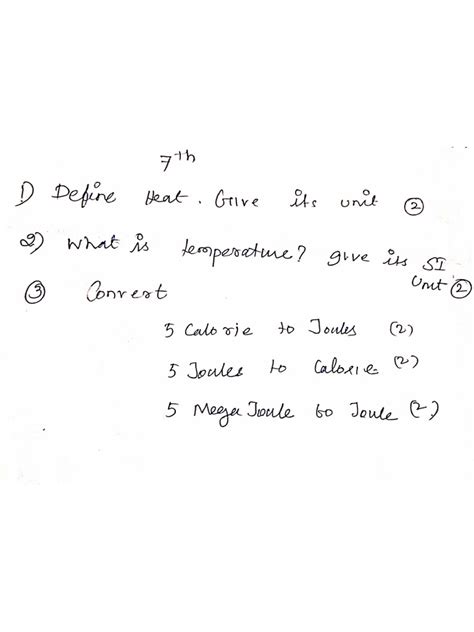 7th
1) Define Heat. Give its unit (2)
2) What is temperature? give its SI
Unit (2)
(3) Convert
5 Calorie to Joules (2)
5 Joules to Calorie (2)
5 Mega Joule to Joule (2)